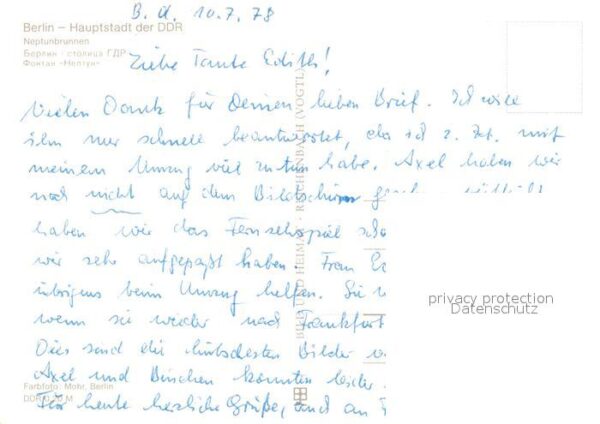 B. d. 10.7.78
Berlin – Hauptstadt der DDR
Neptunbrunnen
Берлин – столица ГДР
Фонтан «Нептун»
Liebe Tante Edith!
Vielen Dank für Deinen lieben Brief. Ich will
ihn nur schnell beantwortet, da ich z. Zt. mit
meinem Umzug viel zu tun habe. Axel haben wir
noch nicht auf dem Bildschirm
haben wir das Fernsehspiel
wir sehr aufgepaßt haben. Frau
übrigens beim Umzug helfen. Sie
wenn sie wieder nach Frankfurt
Dies sind die hübschesten Bilder
Axel und konnten leider
Für heute herzliche Grüße, und an
Farbfoto: Mohr, Berlin
DDR 0,20 M
BILD UND HEIMAT REICHENBACH (VOGTL)
privacy protection
Datenschutz